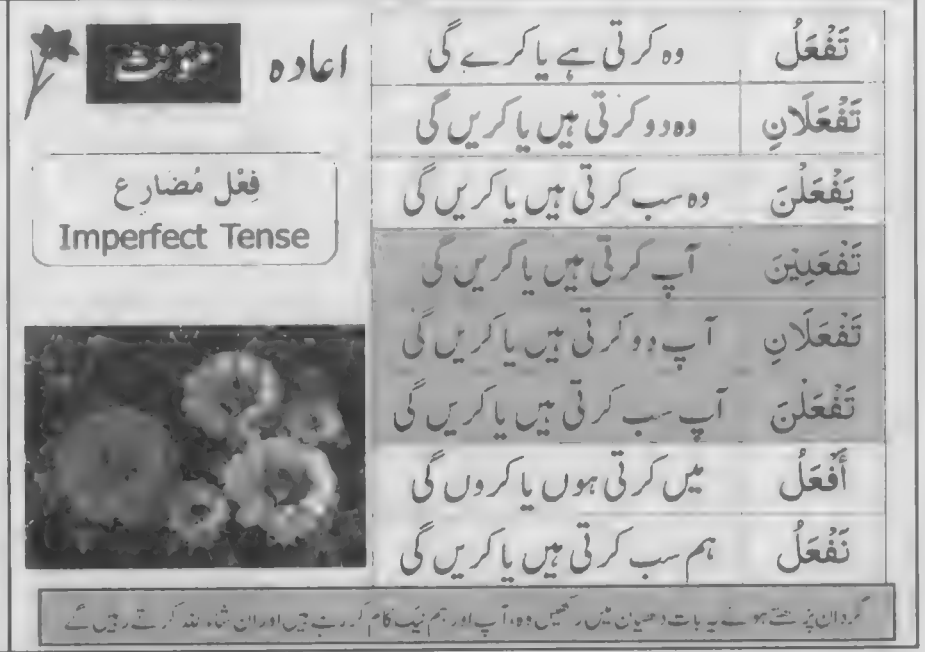 اعادہ مؤنث
فِعْل مُضارِع
Imperfect Tense
تَفْعَلُ وہ کرتی ہے یا کرے گی
تَفْعَلَانِ وہ دو کرتی ہیں یا کریں گی
يَفْعَلْنَ وہ سب کرتی ہیں یا کریں گی
تَفْعَلِيْنَ آپ کرتی ہیں یا کریں گی
تَفْعَلَانِ آپ دو کرتی ہیں یا کریں گی
تَفْعَلْنَ آپ سب کرتی ہیں یا کریں گی
أَفْعَلُ میں کرتی ہوں یا کروں گی
نَفْعَلُ ہم سب کرتی ہیں یا کریں گی
گردان پڑھتے ہوئے یہ بات دھیان میں رکھیں وہ، آپ اور ہم نیک کام کر رہے ہیں اور ان شاء اللہ کرتے رہیں گے